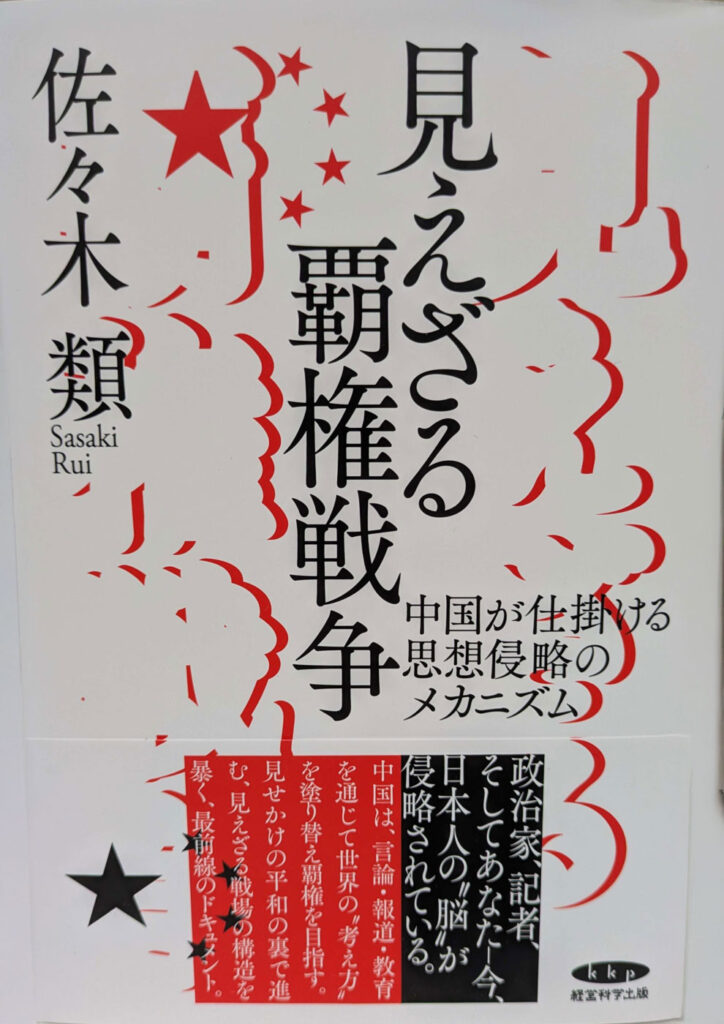 見えざる
覇権戦争
中国が仕掛ける
思想侵略の
メカニズム
佐々木 類
Sasaki
Rui
政治家、記者、
そしてあなた—今、
日本人の“脳”が
侵略されている。
中国は、言論・報道・教育
を通じて世界の“考え方”
を塗り替え覇権を目指す。
見せかけの平和の裏で進
む、見えざる戦場の構造を
暴く、最前線のドキュメント。
kkp
経営科学出版